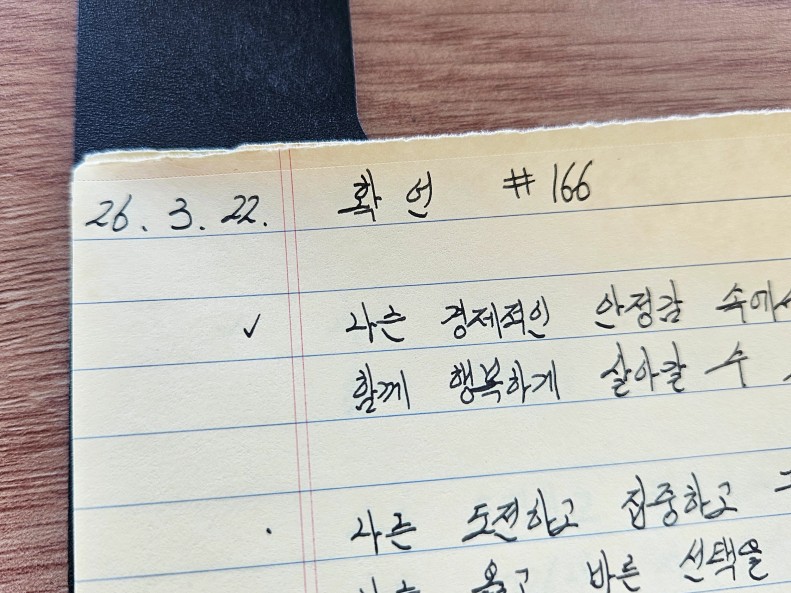 26. 3. 22. 확언 #166
✓ 나는 경제적인 안정감 속에서
함께 행복하게 살아갈 수
· 나는 도전하고 집중하고
나는 옳고 바른 선택을